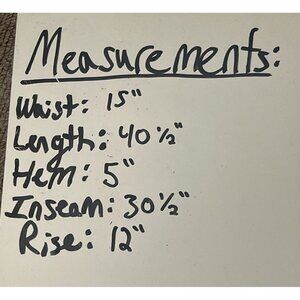 Measurements:
Waist: 15"
Length: 40 ½"
Hem: 5"
Inseam: 30 ½"
Rise: 12"